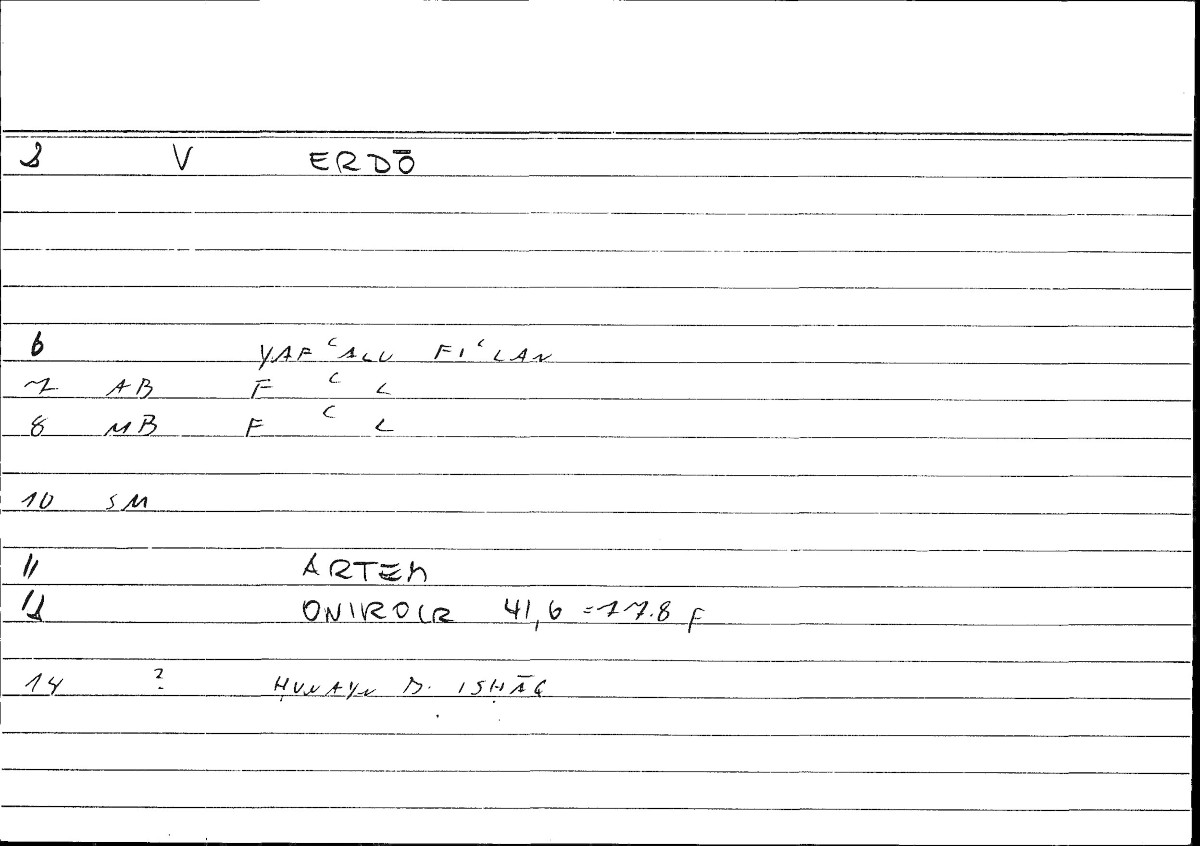 2 V ERDŌ
6 YAFʿALU FIʿLAN
7 AB F ʿ L
8 MB F ʿ L
10 SM
11 ARTEM
12 ONIROCR 41,6 = 77.8 F
14 ? ḤUNAYN B. ISḤĀQ